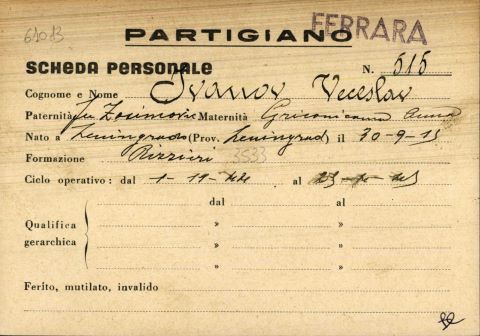 61013
PARTIGIANO
FERRARA
SCHEDA PERSONALE N. 515
Cognome e Nome Ivanov Veceslav
Paternità fu Zosimovic Maternità Anna
Nato a Leningrado (Prov. Leningrad) il 30-9-15
Formazione Rizzieri 3533
Ciclo operativo: dal 1-11-44 al
dal al
»
Qualifica »
gerarchica »
»
Ferito, mutilato, invalido